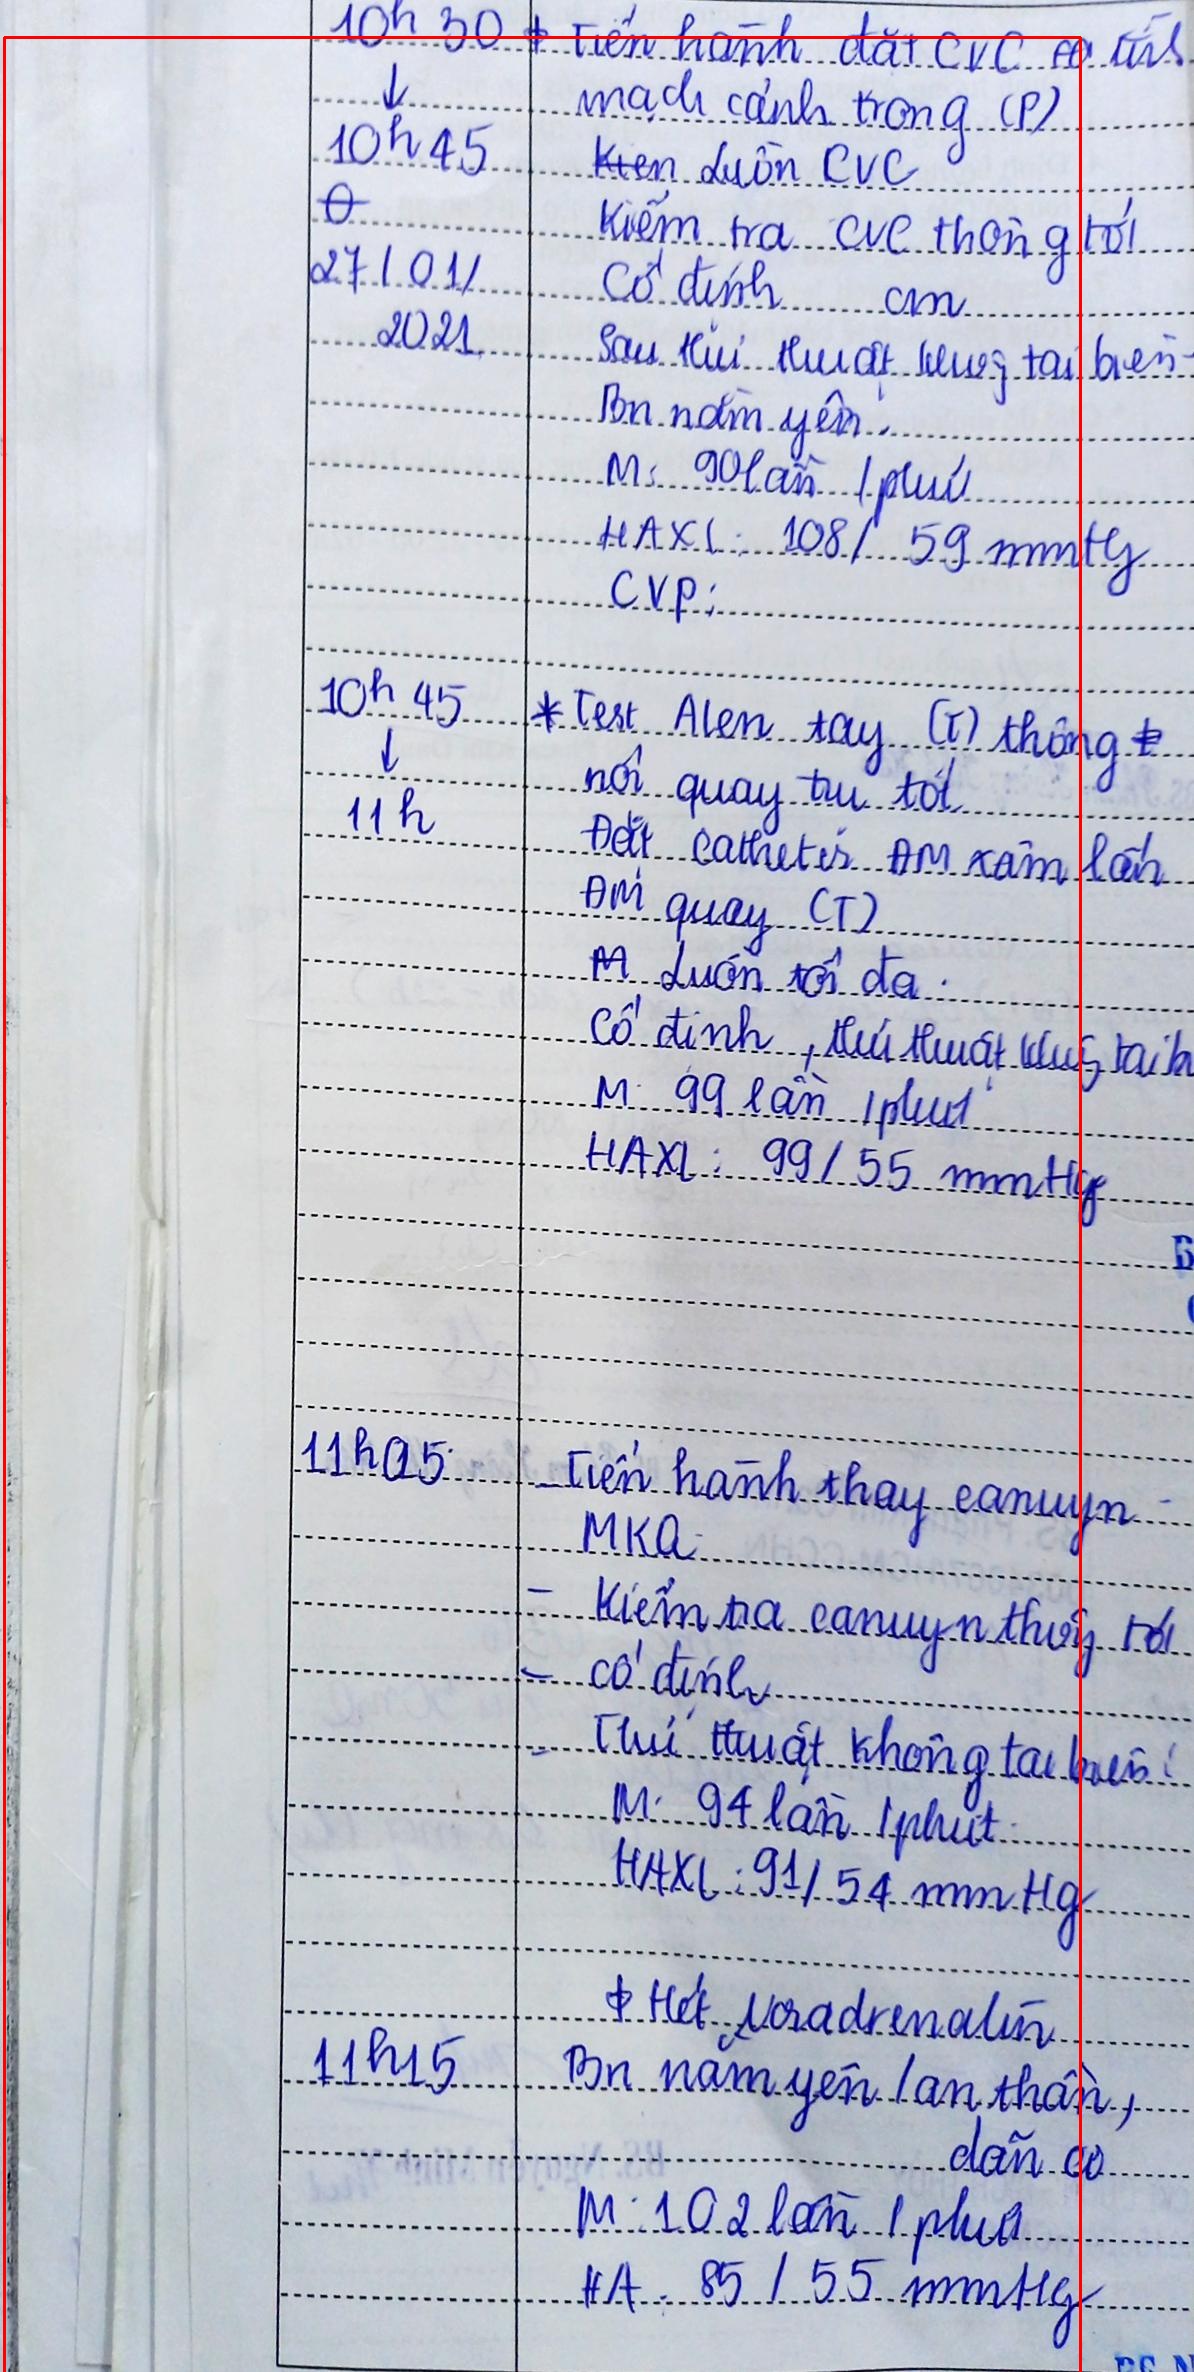 10h30 * Tiến hành đặt CVC tĩnh
↓ mạch cảnh trong (P)
10h45 Luồn CVC
Kiểm tra CVC thông tốt
27/01/ Cố định cm
2021 Sau thủ thuật không tai biến
Bn nằm yên.
M: 90 lần / phút
HAXL: 108/59 mmHg
CVP:
10h45 * Test Alen tay (T) thông
↓ nối quay trụ tốt
11h Đặt catheter ĐM xâm lấn
ĐM quay (T)
Luồn tối đa.
Cố định, thủ thuật không tai b
M: 99 lần / phút
HAXL: 99/55 mmHg
11h05 - Tiến hành thay canuyn
MKQ
- Kiểm tra canuyn thông tốt
- cố định
- Thủ thuật không tai biến.
M: 94 lần / phút
HAXL: 91/54 mmHg
* Hết Noradrenalin
11h15 Bn nằm yên / an thần,
dãn cơ
M: 102 lần / phút
HA: 85/55 mmHg